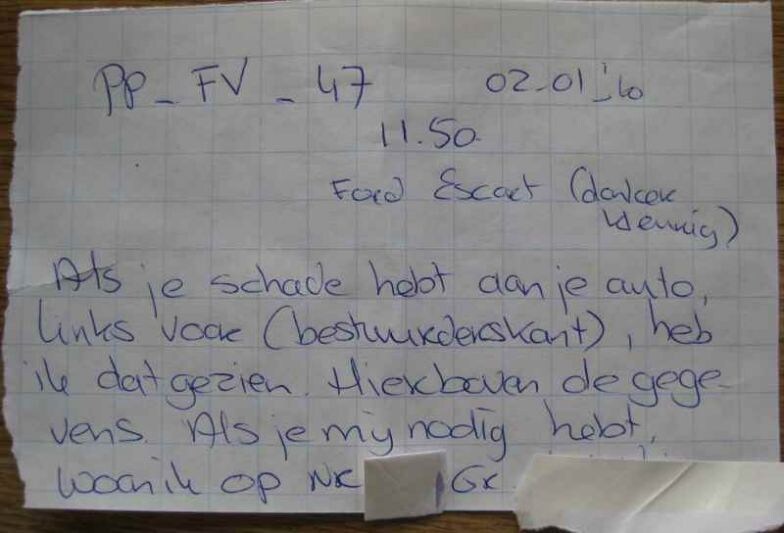 PP_FV_47 02-01-'10
11.50
Ford Escort (donker
kleurig)
Als je schade hebt aan je auto,
links voor (bestuurderskant), heb
ik dat gezien. Hierboven de gege-
vens. Als je mij nodig hebt,
woon ik op nr Gr.